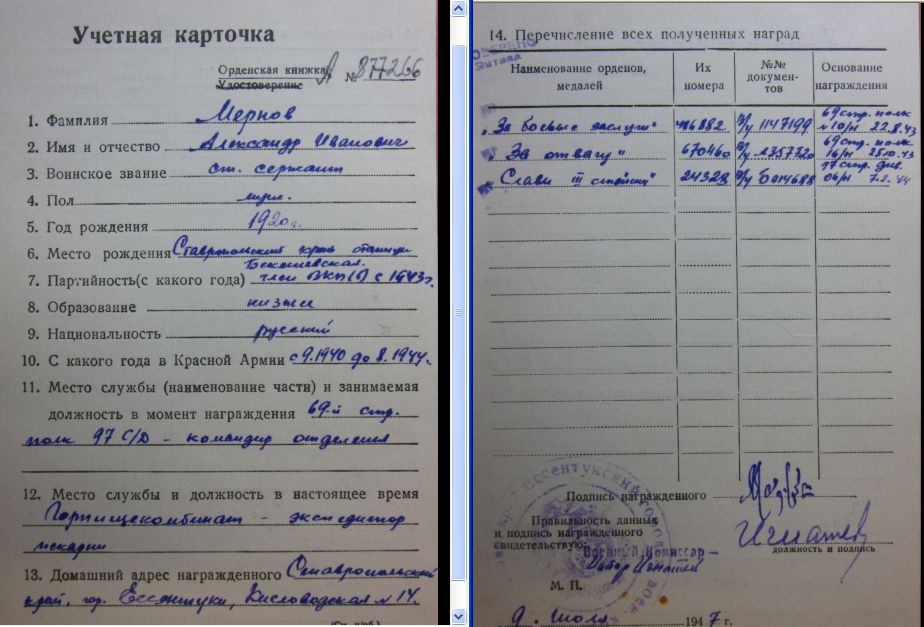 Учетная карточка
Орденская книжка А № 877266
Удостоверение
1. Фамилия Мернов
2. Имя и отчество Александр Иванович
3. Воинское звание ст. сержант
4. Пол муж.
5. Год рождения 1920 г.
6. Место рождения Ставропольский край станица
Бекешевская.
7. Партийность(с какого года) член ВКП(б) с 1943г.
8. Образование низшее
9. Национальность русский
10. С какого года в Красной Армии с 9.1940 до 8.1944г.
11. Место службы (наименование части) и занимаемая
должность в момент награждения 69-й стр.
полк 97 С/Д – командир отделения
12. Место службы и должность в настоящее время
Горпищекомбинат – экспедитор
пекарни
13. Домашний адрес награжденного Ставропольский
край, гор. Ессентуки, Кисловодская № 14.
14. Перечисление всех полученных наград
Наименование орденов, медалей
Их номера
№№ документов
Основание награждения
„За боевые заслуги" в/у 1147199 69 стр. полк
№ 10/н 22.8.43
„За отвагу" 670460 в/у 69 стр. полк
16/н 25.10.43
„Слава III степени" 24328 в/у Б 014688 97 стр. див.
06/н 7.2.44
Подпись награжденного
Правильность данных
и подпись награжденного
свидетельствую: Военный Комиссар –
Майор Игнатьев
должность и подпись
М. П.
9. Июля 1947 г.